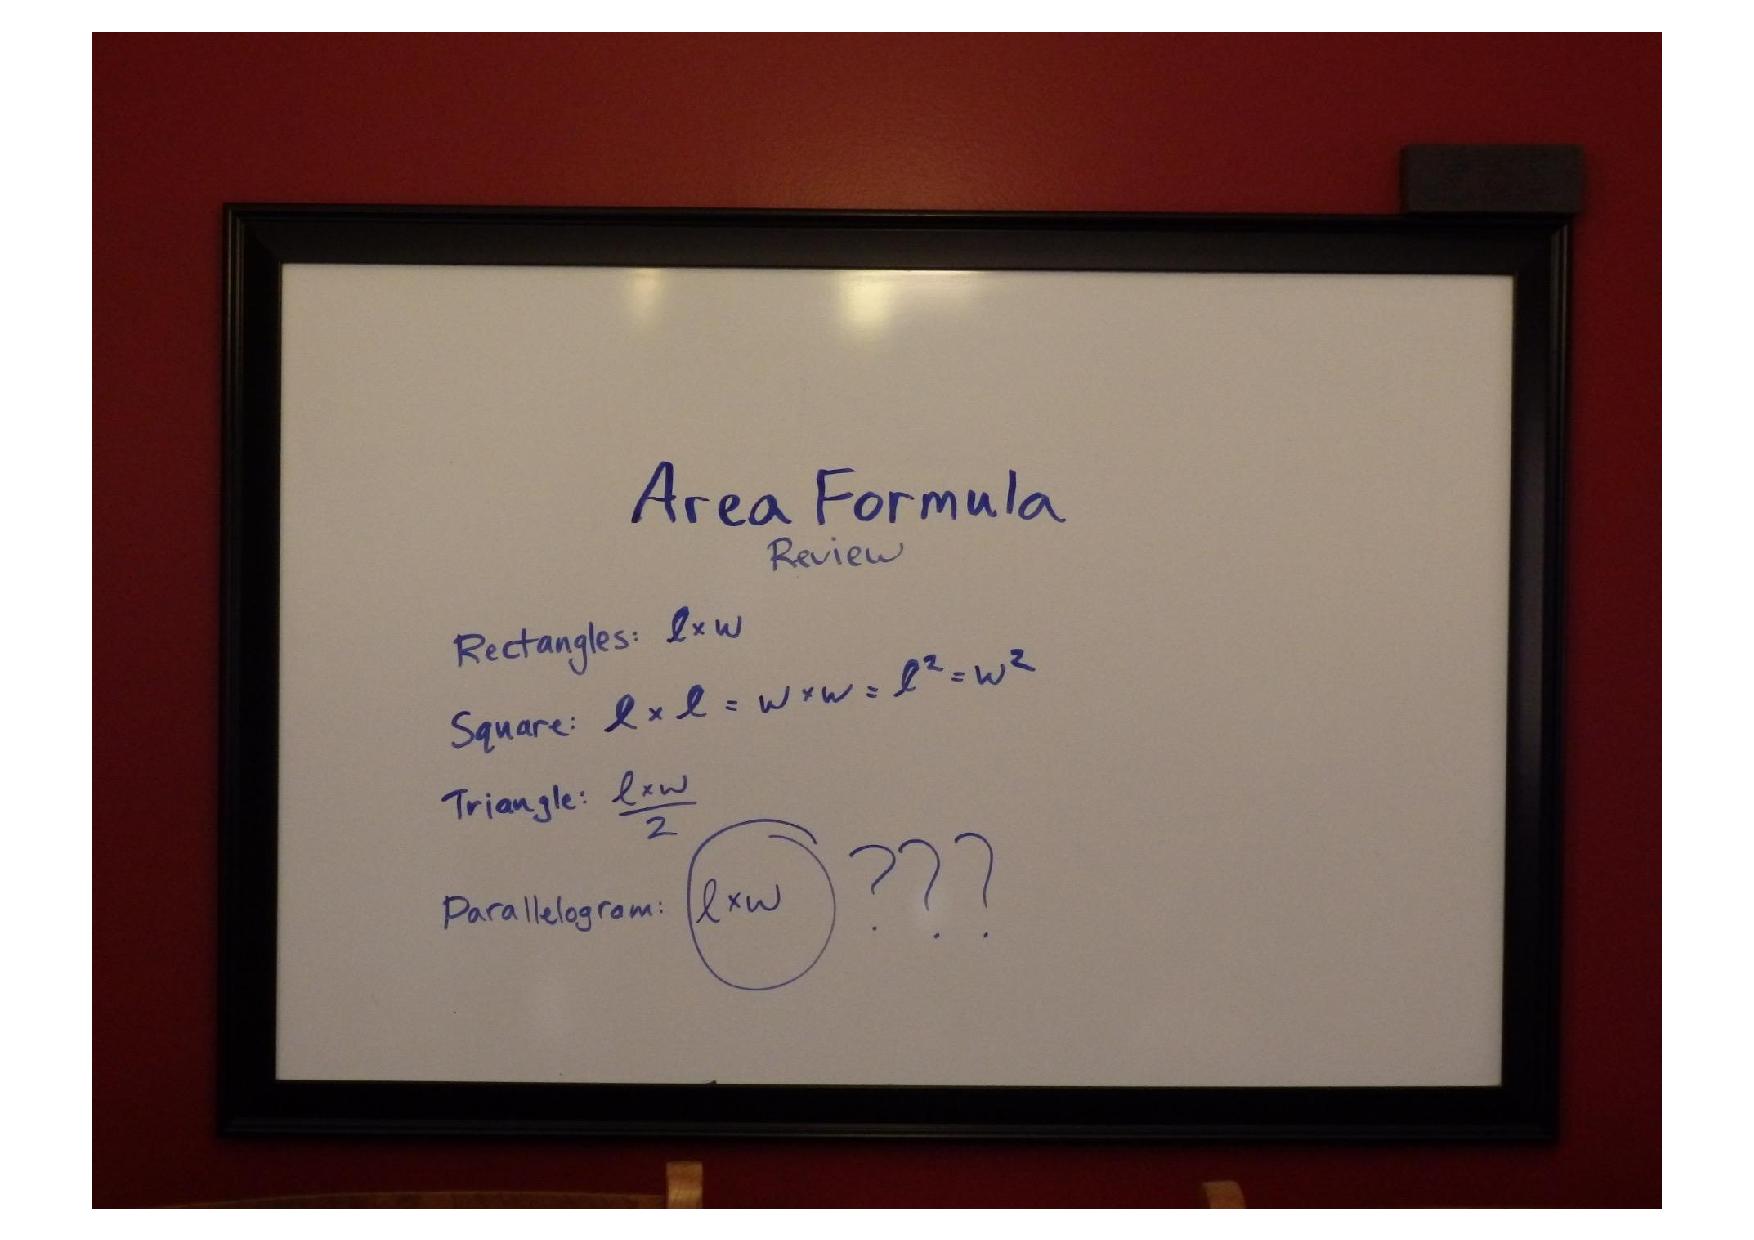 Area Formula
Review
Rectangles: l×w
Square: l × l = w×w = l² = w²
Triangle: l×w
2
Parallelogram: l×w ???